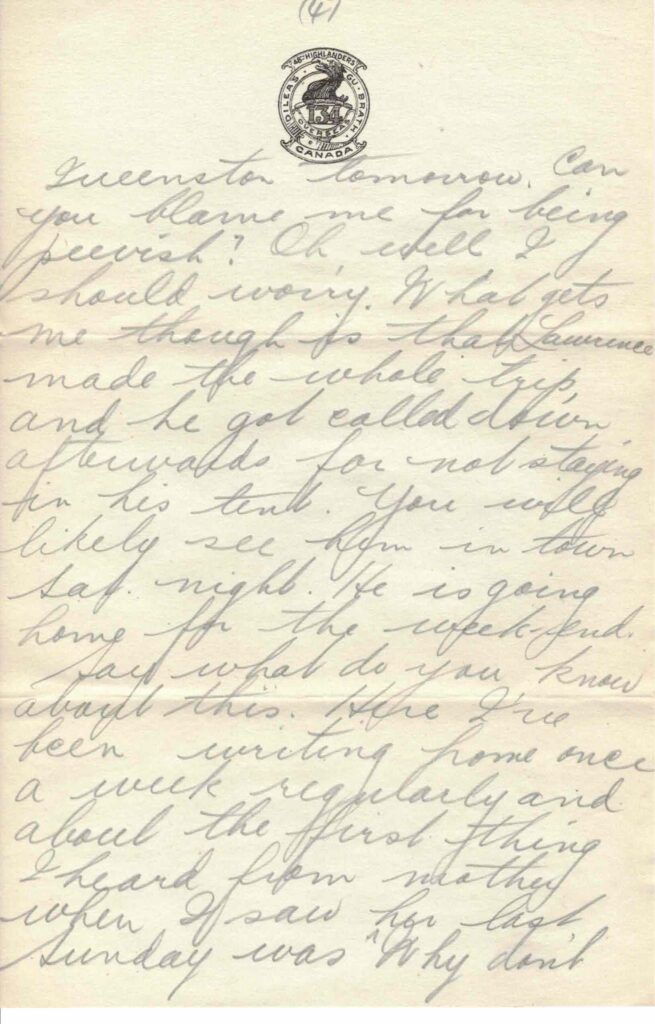 (4)
48TH HIGHLANDERS
DILEAS GU BRATH
134
OVERSEAS
CANADA
Queenston tomorrow. Can
you blame me for being
peevish? Oh well I
should worry. What gets
me though is that Lawrence
made the whole trip
and he got called down
afterwards for not staying
in his tent. You will
likely see him in town
Sat. night. He is going
home for the week-end.
Say what do you know
about this. Here I've
been writing home once
a week regularly and
about the first thing
I heard from mother
when I saw her last
Sunday was "Why don't